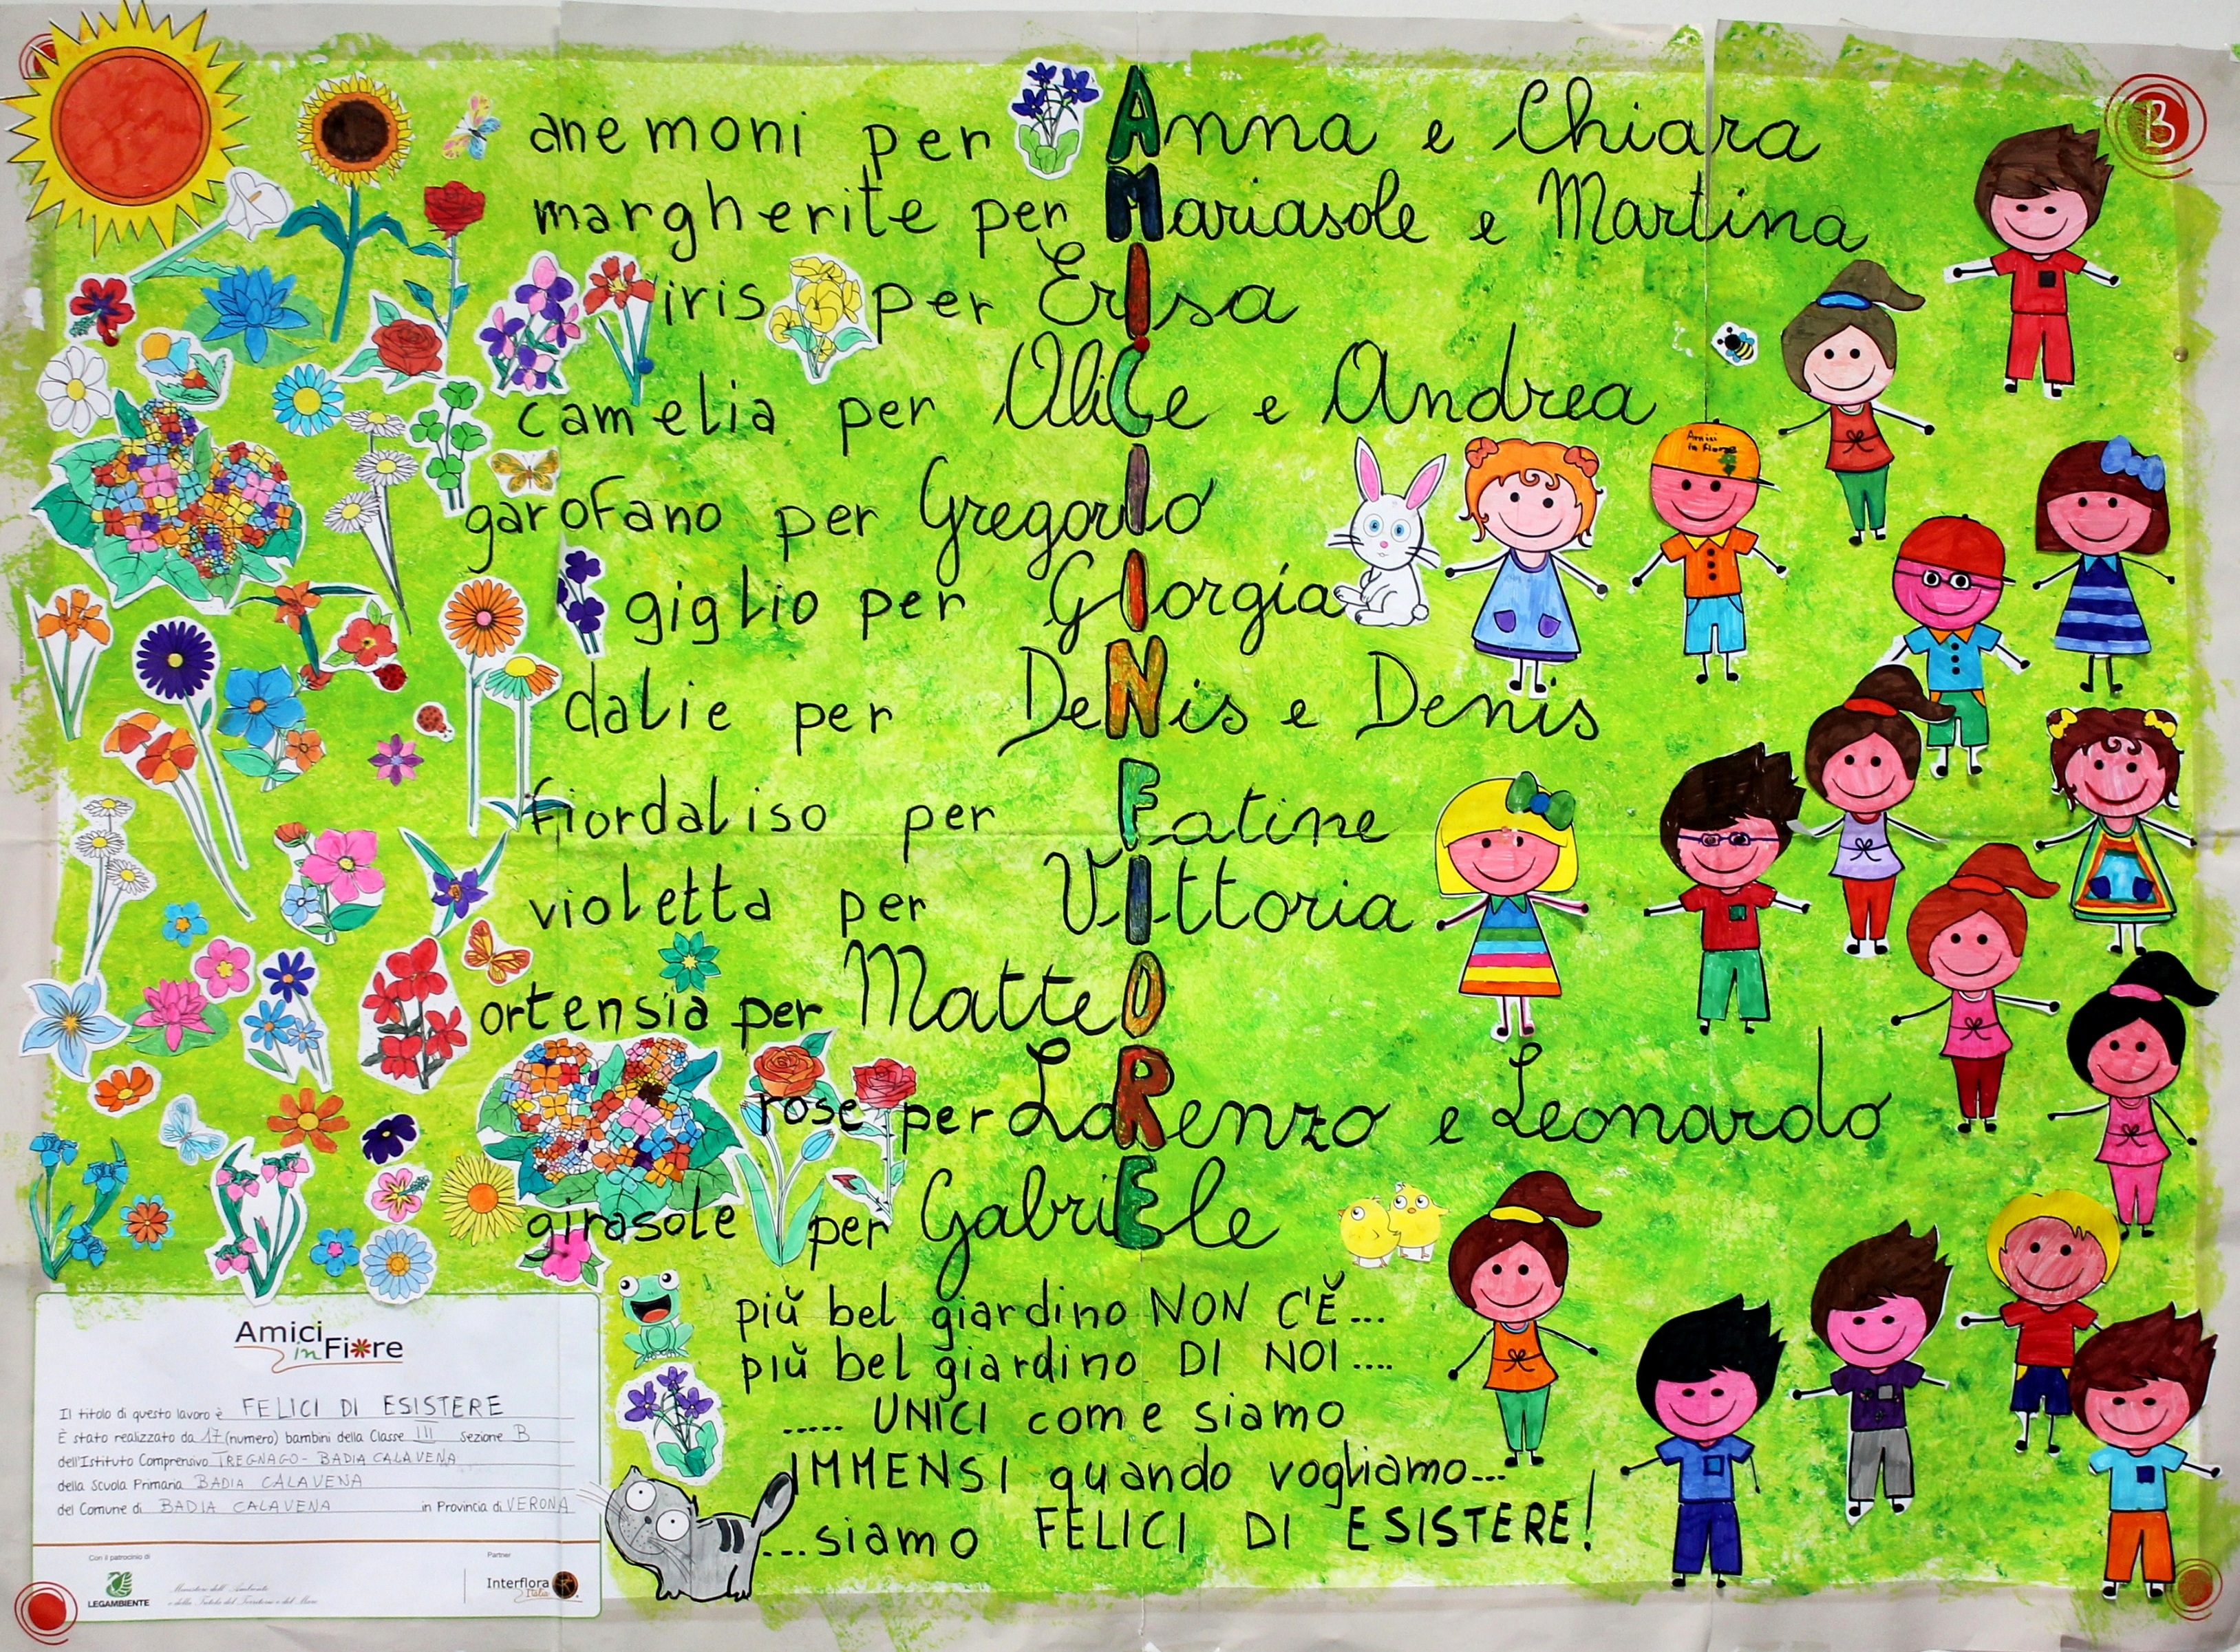 B
anemoni per Anna e Chiara
margherite per Mariasole e Martina
iris per ErIsa
camelia per AliCe e Andrea
garofano per GregorIo
giglio per GIorgia
dalie per DeNis e Denis
fiordaliso per Fatine
violetta per VIttoria
ortensia per MatteO
rose per LoRenzo e Leonardo
girasole per GabriEle
più bel giardino NON C'È...
più bel giardino DI NOI....
..... UNICI come siamo
IMMENSI quando vogliamo...
...siamo FELICI DI ESISTERE!
Amici in Fiore
Amici
in Fiore
Il titolo di questo lavoro è FELICI DI ESISTERE
È stato realizzato da 17 (numero) bambini della Classe III Sezione B
dell'Istituto Comprensivo TREGNAGO - BADIA CALAVENA
della Scuola Primaria BADIA CALAVENA
del Comune di BADIA CALAVENA in Provincia di VERONA
Con il patrocinio di
Partner
LEGAMBIENTE
Ministero dell'Ambiente
e della Tutela del Territorio e del Mare
Interflora
Italia